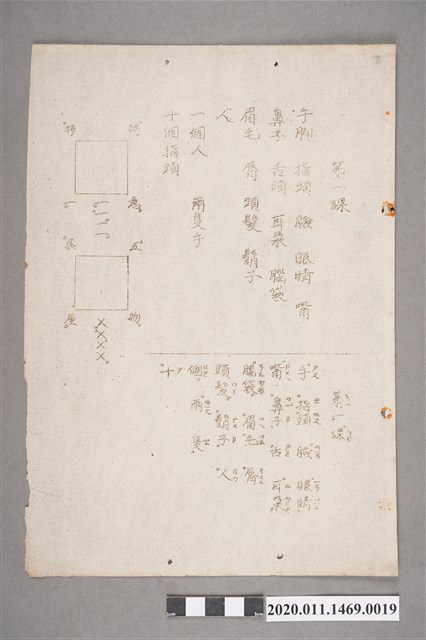 第一課
手脚 指頭 臉 眼睛 嘴
鼻子 舌頭 耳朵 腦袋
眉毛 唇 頭髮 鬍子
人
一個人 兩隻手
十個指頭
第一課
手 指頭 臉 眼睛
嘴 鼻子 舌 耳朵
腦袋 眉毛 唇
頭髮 鬍子 人
個 兩 隻
十
五 物
2020.011.1469.0019